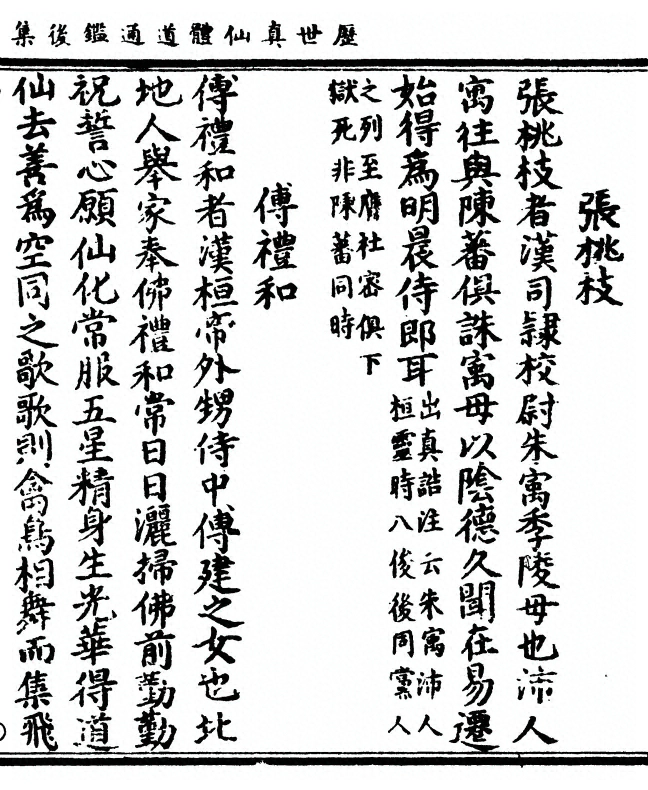 歷世真仙體道通鑑後集
張桃枝
張桃枝者漢司隸校尉朱寓季陵母也沛人
寓往與陳蕃俱誅寓母以陰德久聞在易遷
始得為明晨侍郎耳出真誥注云朱寓沛人
桓靈時八俊後同黨人
之列至膺杜密俱下
獄死非陳蕃同時
傅禮和
傅禮和者漢桓帝外甥侍中傅建之女也北
地人舉家奉佛禮和常日日灑掃佛前勤勤
祝誓心願仙化常服五星精身生光華得道
仙去善為空同之歌歌則禽鳥相舞而集飛